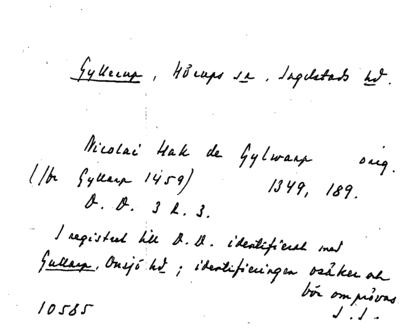 Gyllerup, Hörups sn, Ingelstads hd.
Nicolai Hak de Gylwarp orig.
(/br Gyllarp 1459) 1349, 189.
D. D. 3 R. 3.
I registret till D. D. identifierat med
Gullarp, Onsjö hd; identifieringen osäker och
bör omprövas
J. S.
10585